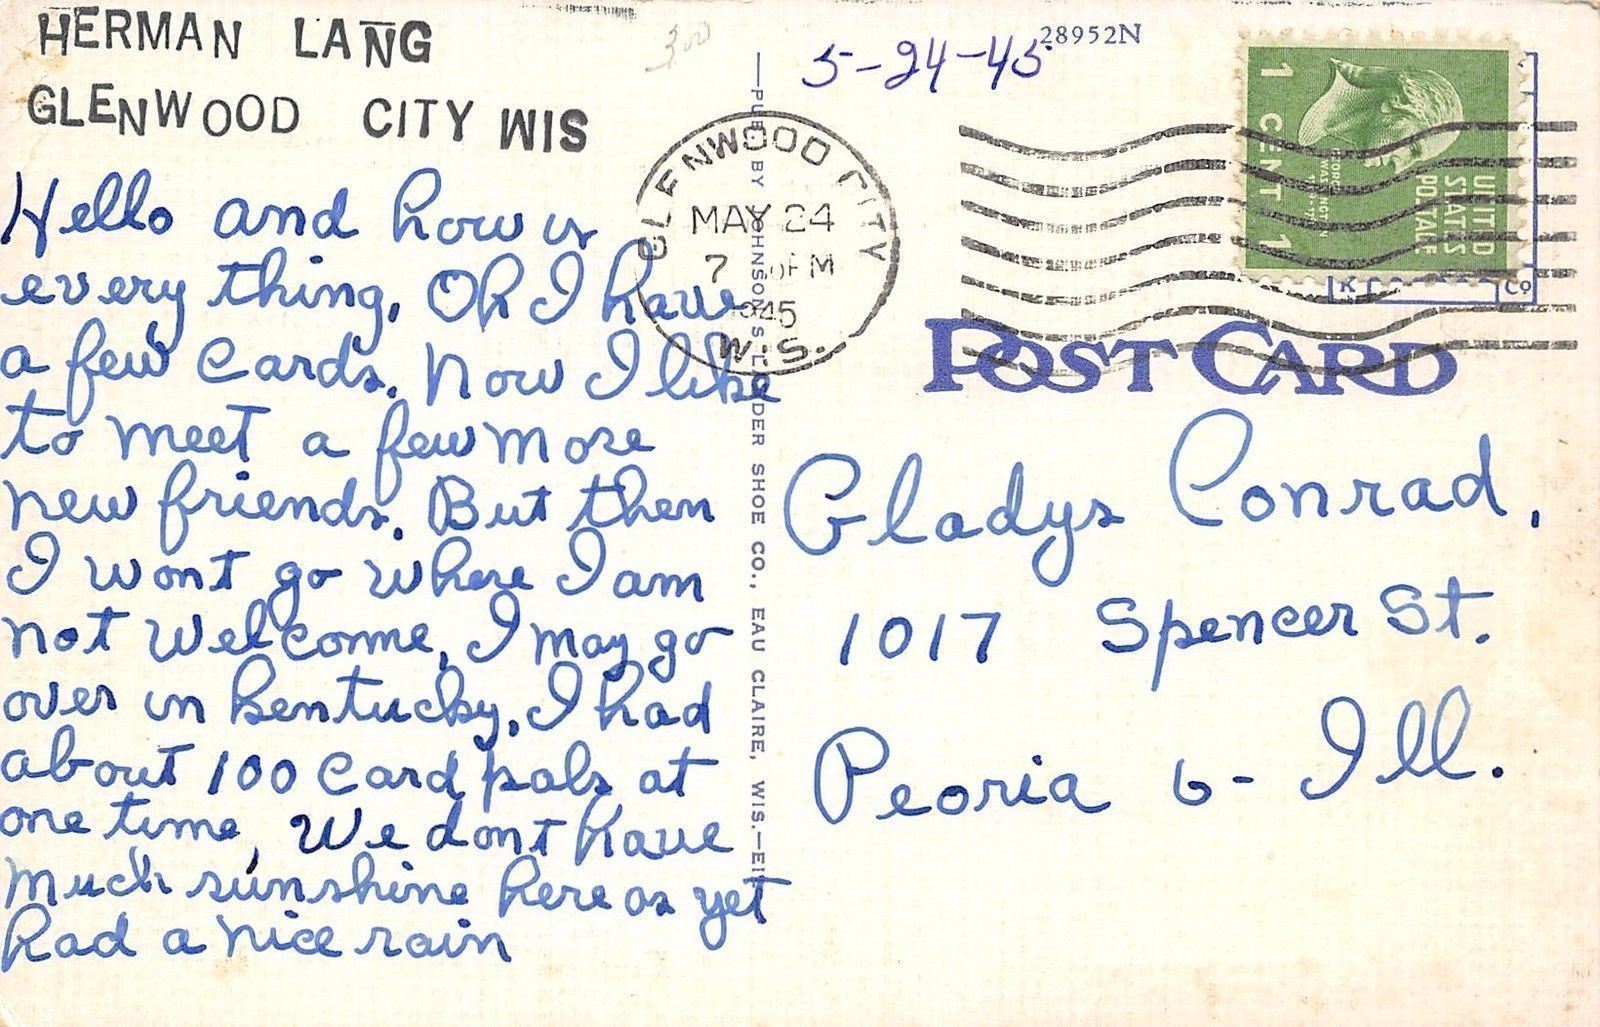 HERMAN LANG
GLENWOOD CITY WIS
Hello and how is
every thing. Oh I have
a few cards. Now I like
to meet a few more
new friends. But then
I wont go where I am
not welcome, I may go
over in Kentucky. I had
about 100 card pals at
one time, We dont have
much sunshine here as yet
had a nice rain
300
28952N
5-24-45
GLENWOOD CITY
MAY 24
7 PM
1945
WIS.
1 CENT 1
UNITED
STATES
POSTAGE
GEORGE WASHINGTON
K Co
POST CARD
Gladys Conrad,
1017 Spencer St.
Peoria 6- Ill.
—PUB. BY JOHNSON'S LEADER SHOE CO., EAU CLAIRE, WIS.—